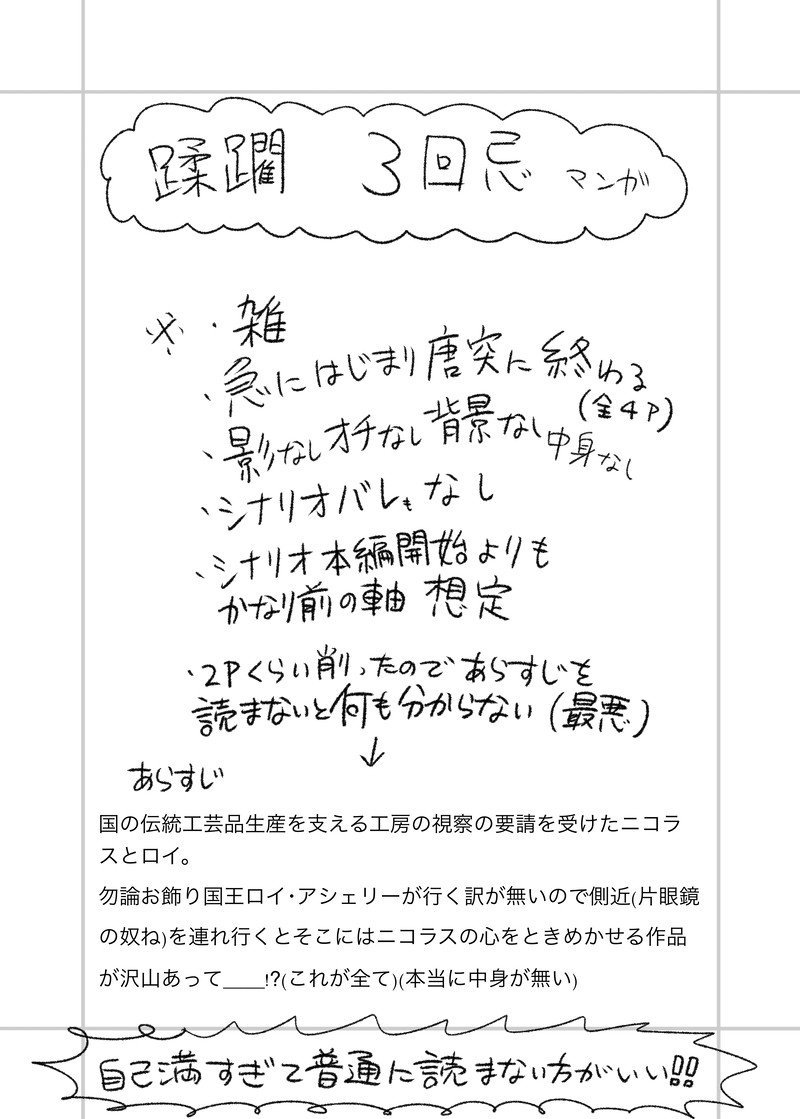 蹂躙 3回忌 マンガ
※・雑
・急にはじまり唐突に終わる
(全4P)
・影なしオチなし背景なし中身なし
・シナリオバレもなし
・シナリオ本編開始よりも
かなり前の軸 想定
・2Pくらい削ったのであらすじを
読まないと何も分からない(最悪)
↓
あらすじ
国の伝統工芸品生産を支える工房の視察の要請を受けたニコラ
スとロイ。
勿論お飾り国王ロイ・アシェリーが行く訳が無いので側近(片眼鏡
の奴ね)を連れ行くとそこにはニコラスの心をときめかせる作品
が沢山あって____!?(これが全て)(本当に中身が無い)
自己満すぎて普通に読まない方がいい!!